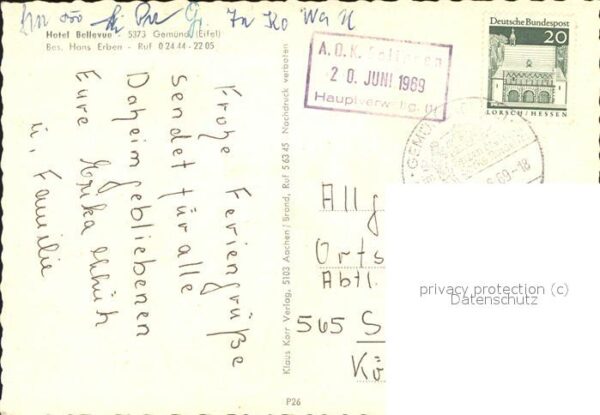 Hotel Bellevue - 5373 Gemünd (Eifel)
Bes. Hans Erben - Ruf 0 24 44 - 22 05
Frohe Feriengrüße
sendet für alle
Daheimgebliebenen
Eure Erika
u. Familie
Klaus Korr Verlag, 5103 Aachen/Brand, Ruf 5 63 45 Nachdruck verboten
P26
A.O.K. Solingen
20. JUNI 1969
Hauptverw
Deutsche Bundespost
20
LORSCH/HESSEN
GEMÜ
.69-18
Allg
Orts
Abtl.
565 S
Kö
privacy protection (c)
Datenschutz